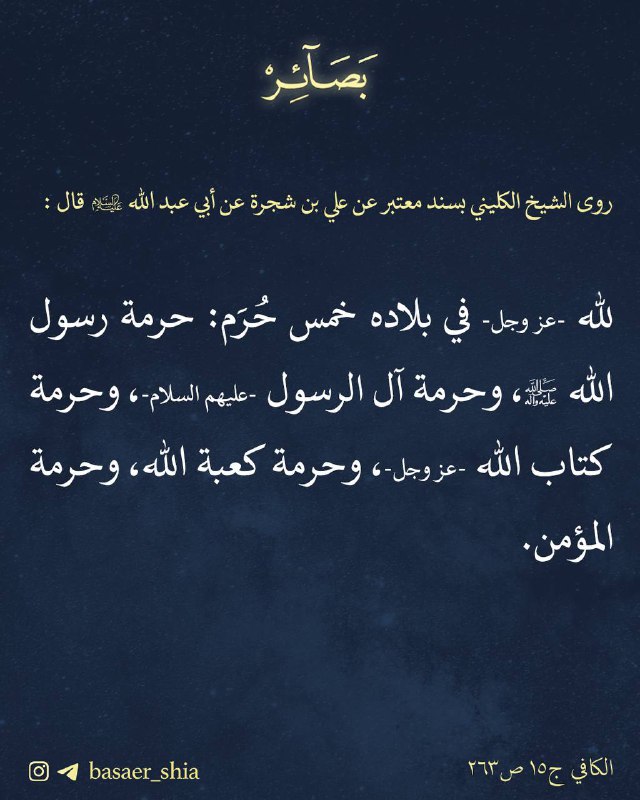 بَصَآئِر
روى الشيخ الكليني بسند معتبر عن علي بن شجرة عن أبي عبد الله عليه السلام قال :
لله -عز وجل- في بلاده خمس حُرَم: حرمة رسول
الله ﷺ، وحرمة آل الرسول -عليهم السلام-، وحرمة
كتاب الله -عز وجل-، وحرمة كعبة الله، وحرمة
المؤمن.
الكافي ج١٥ ص٢٦٣
basaer_shia